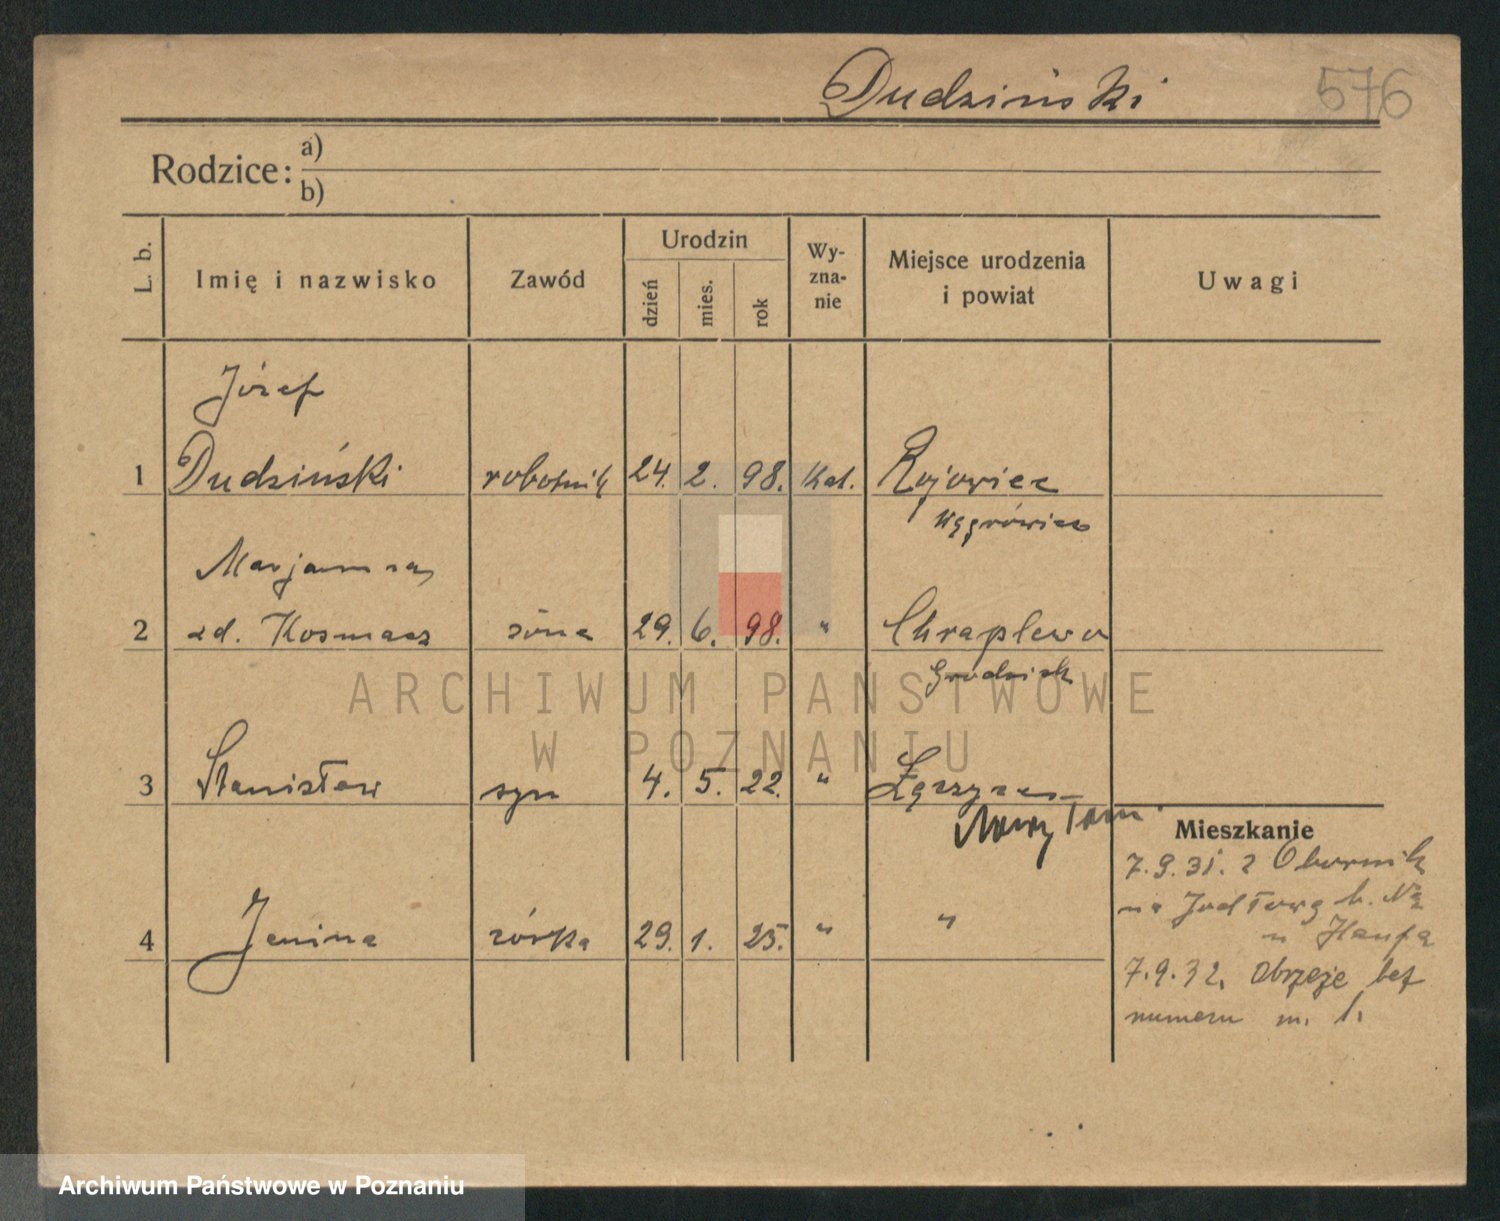 Dudziński 576
Rodzice: a)
b)
L. b. Imię i nazwisko Zawód Urodzin dzień mies. rok Wy-zna-nie Miejsce urodzenia i powiat Uwagi
Józef
1 Dudziński robotnik 24. 2. 98. kat.
Wągrówiec
Marjanna
2 zd. Kosmacz żona 29. 6. 98. " Chraplewo
Grodzisk
ARCHIWUM PAŃSTWOWE
W POZNANIU
3 Stanisław syn 4. 5. 22. "
Nowy Tom.
Mieszkanie
7.9.31. z Obornik
na Jodłową b. Nr
u
4 Janina córka 29. 1. 25. " "
7.9.32. Obrzeże bez
numeru m. 1.
Archiwum Państwowe w Poznaniu